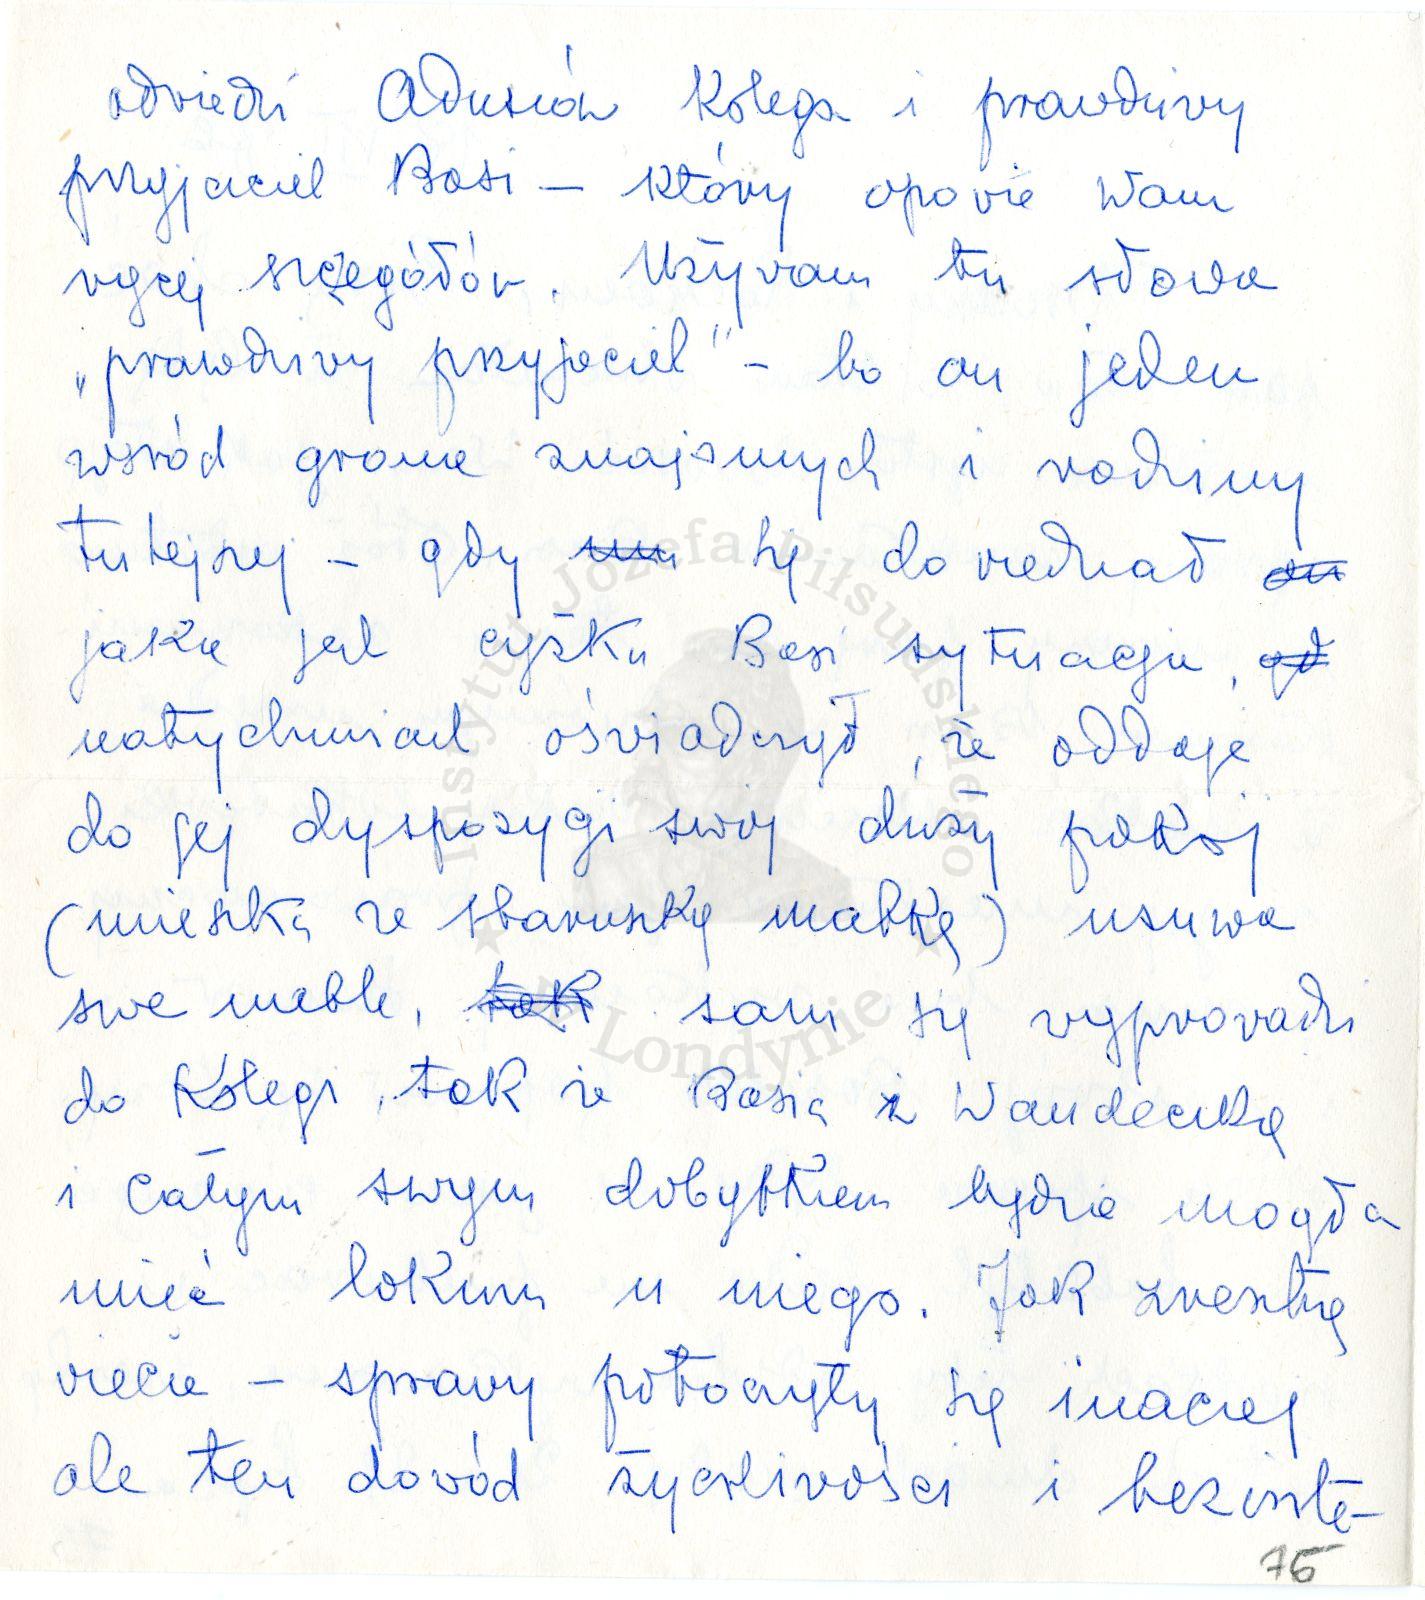 odwiedzi Adusiów Kolega i prawdziwy
przyjaciel Basi – który opowie Wam
więcej szczegółów. Używam tu słowa
„prawdziwy przyjaciel" – bo on jeden
wśród grona znajomych i rodziny
tutejszej – gdy się dowiedział
jaka jest ciężka Basi sytuacja,
natychmiast oświadczył, że oddaje
do jej dyspozycji swój duży pokój
(mieszka ze staruszką matką) usuwa
swe meble, sam się wyprowadzi
do Kolegi, tak że Basia z Wandeczką
i całym swym dobytkiem będzie mogła
mieć lokum u niego. Jak zresztą
wiecie – sprawy potoczyły się inaczej
ale ten dowód życzliwości i bezinte-
76
Instytut Józefa Piłsudskiego
w Londynie